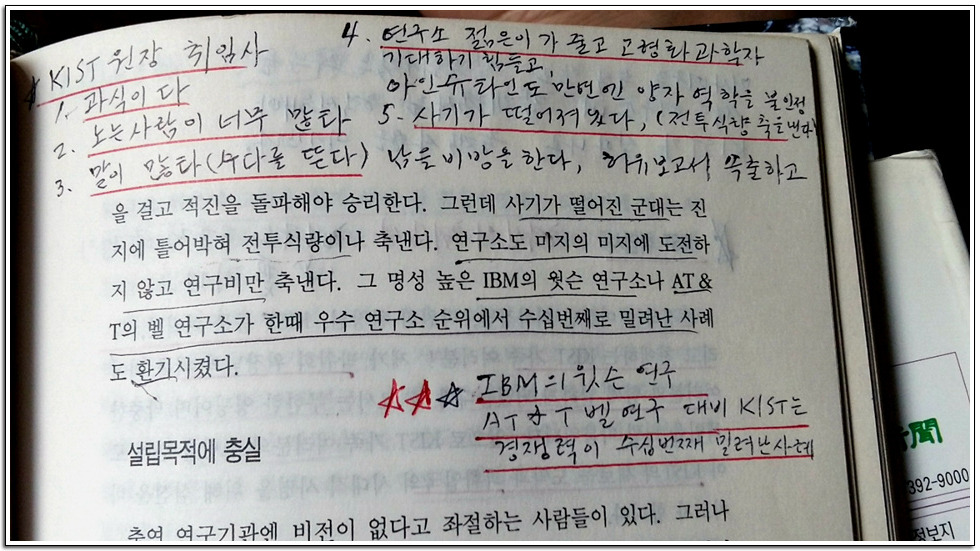 ☆ KIST 원장 취임사
1. 과식이다
2. 노는사람이 너무 많타
3. 말이 많타(수다를 뜬다) 남을 비방을 한다, 허유보고서 뜩출하고
4. 연구소 젊은이가 줄고 고령화과학자
기대하기 힘들고,
아인슈타인도 만년엔 양자역학을 불인정
5. 사기가 떨어져있다, (전투식량 축을낸다)
을 걸고 적진을 돌파해야 승리한다. 그런데 사기가 떨어진 군대는 진
지에 틀어박혀 전투식량이나 축낸다. 연구소도 미지의 미지에 도전하
지 않고 연구비만 축낸다. 그 명성 높은 IBM의 왓슨 연구소나 AT&
T의 벨 연구소가 한때 우수 연구소 순위에서 수십번째로 밀려난 사례
도 환기시켰다.
☆☆☆ IBM의 윗슨 연구
AT&T 벨 연구 대비 KIST는
경쟁력이 수십번째 밀려난사례
설립목적에 충실
출연 연구기관엔 비전이 없다고 좌절하는 사람들이 있다. 그러나
聞
392-9000
정보지